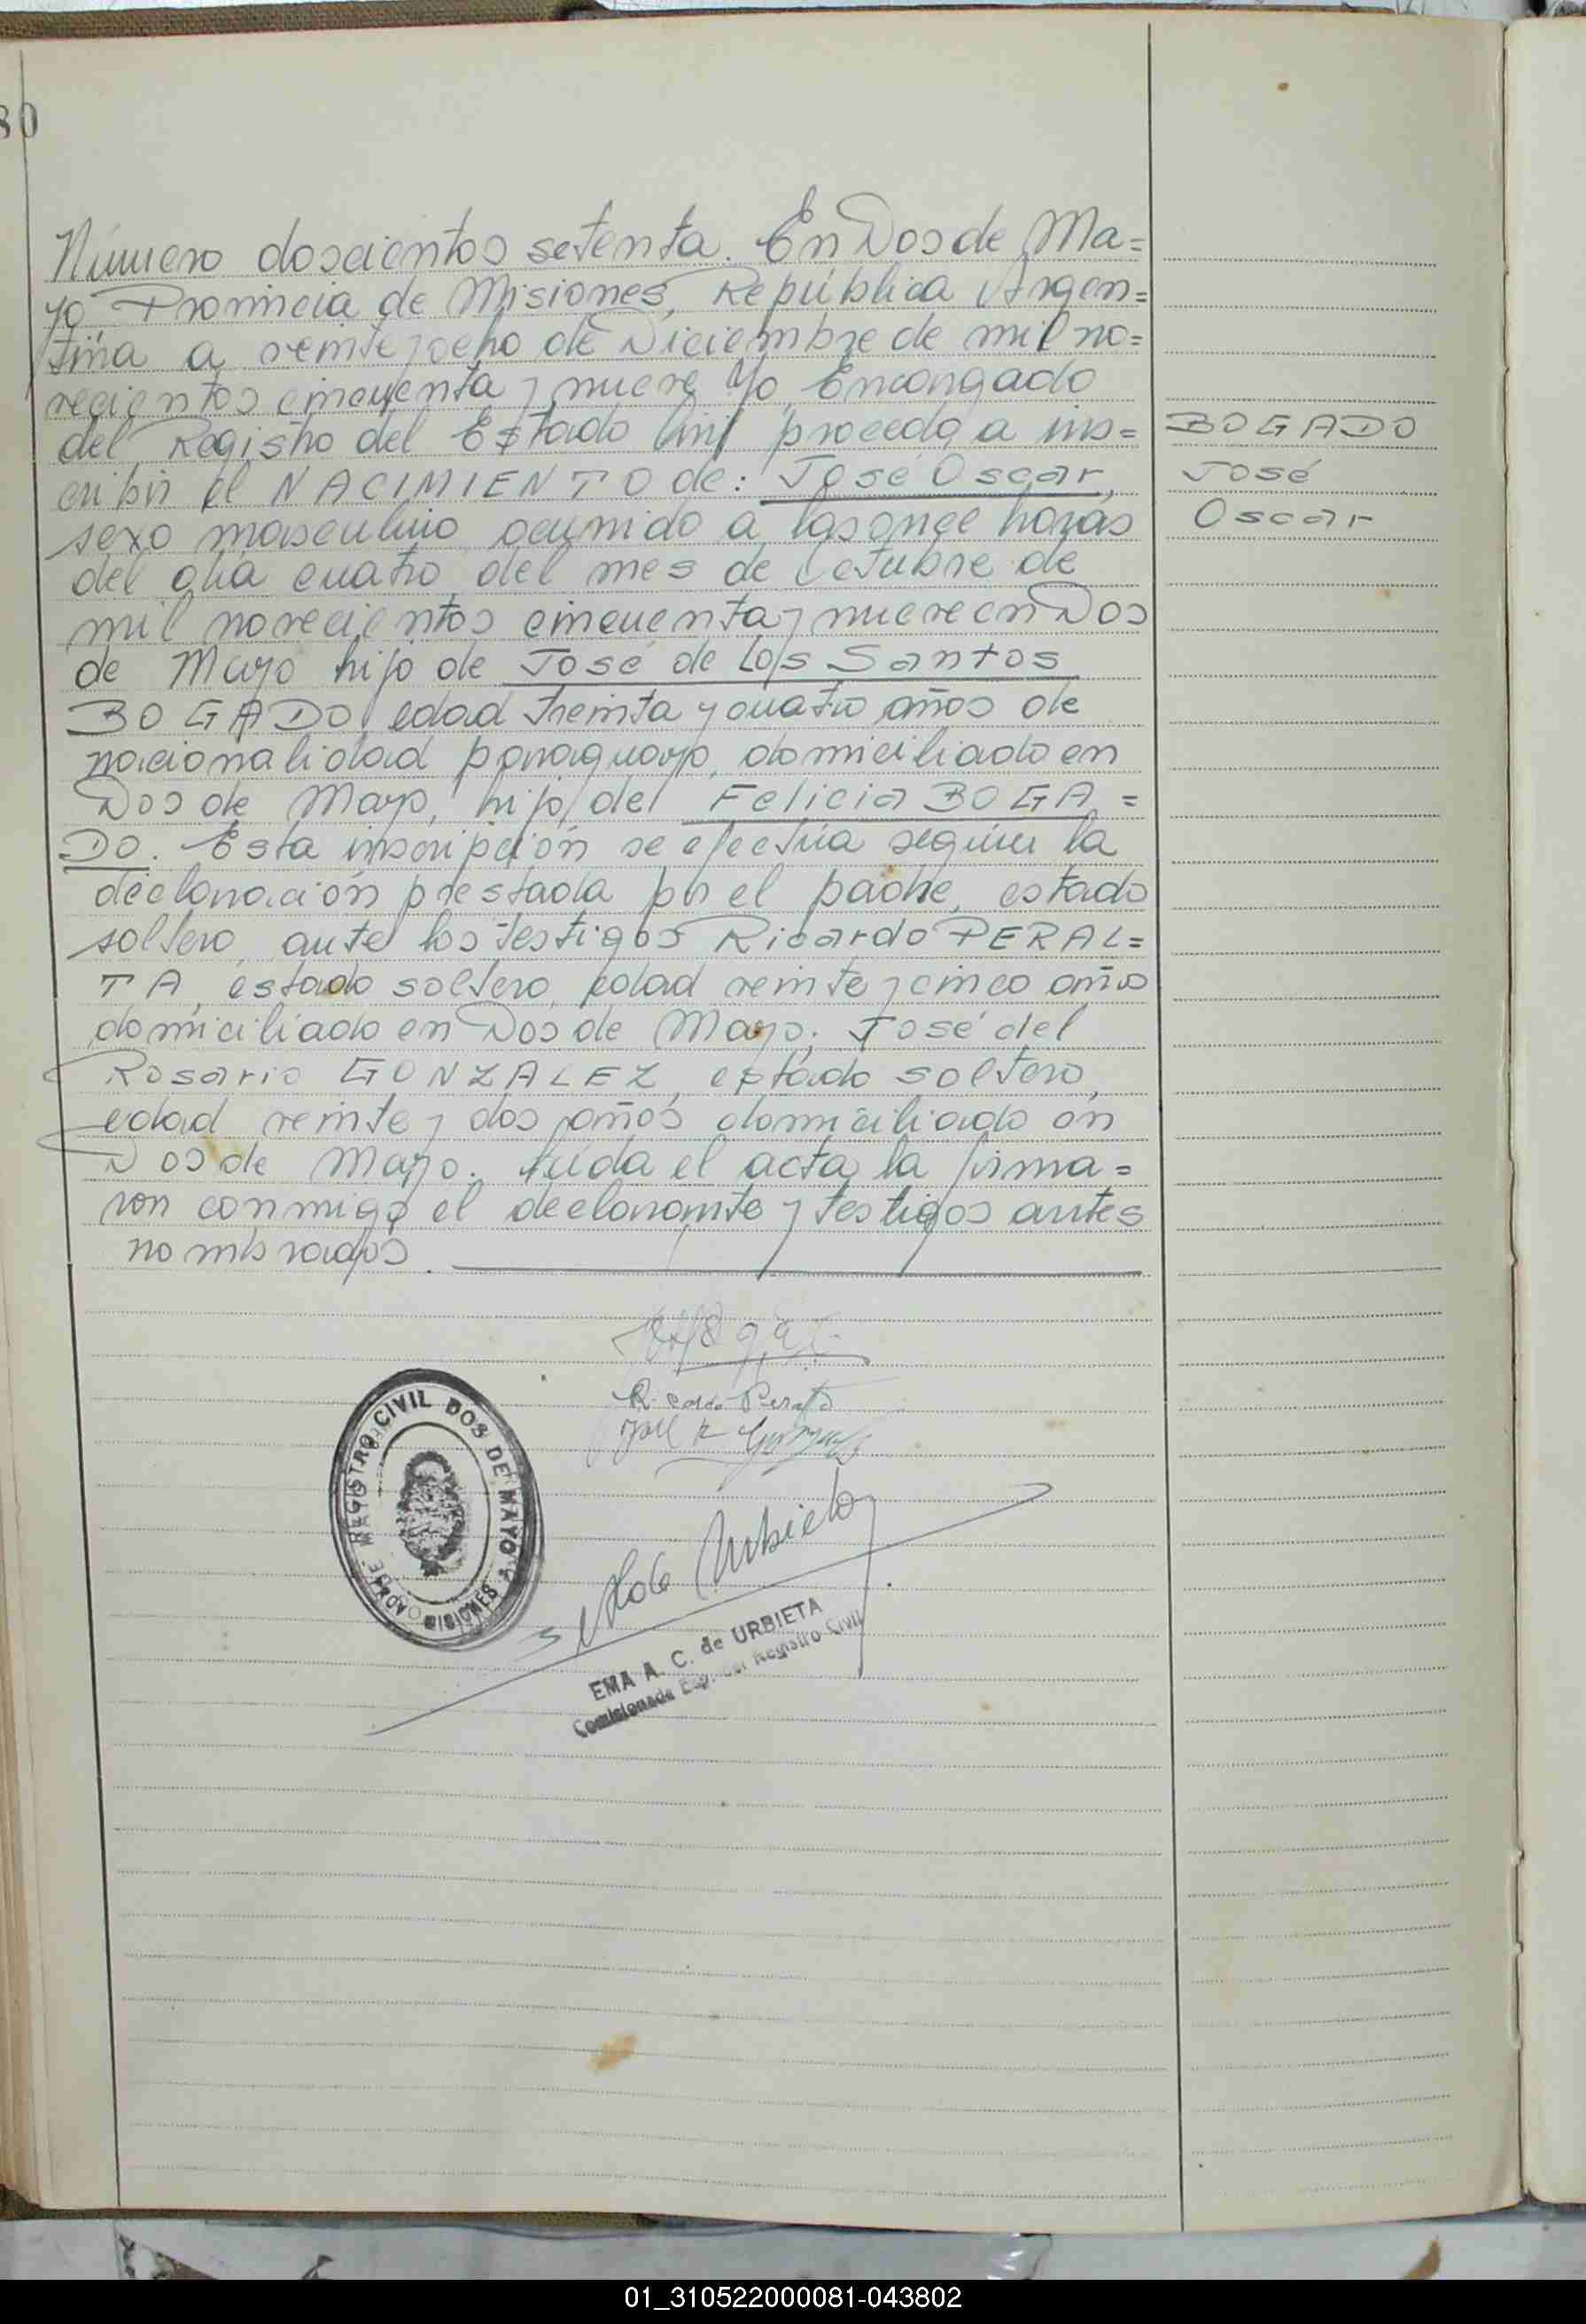 80
Número doscientos setenta. En Dos de Ma=
yo Provincia de Misiones, República Argen=
tina a veinte y ocho de Diciembre de mil no=
vecientos cincuenta y nueve Yo Encargado
del Registro del Estado Civil procedo a ins=
BOGADO
cribir el NACIMIENTO de: José Oscar,
José
sexo masculino ocurrido a las once horas
Oscar
del día cuatro del mes de Octubre de
mil novecientos cincuenta y nueve en Dos
de Mayo hijo de José de los Santos
BOGADO, edad treinta y cuatro años de
nacionalidad paraguayo, domiciliado en
Dos de Mayo, hijo de Felicia BOGA=
DO. Esta inscripción se efectúa según la
declaración prestada por el padre, estado
soltero, ante los testigos Ricardo PERAL=
TA, estado soltero, edad veinte y cinco años
domiciliado en Dos de Mayo; José del
Rosario GONZALEZ, estado soltero,
edad veinte y dos años domiciliado en
Dos de Mayo. Leída el acta la firma=
ron conmigo el declarante y testigos antes
nombrados.
Ricardo Peralta
José R Gonzalez
REGISTRO CIVIL DOS DE MAYO
MISIONES
Urbieta
EMA A. C. de URBIETA
Comisionada Esp. del Registro Civil
01_310522000081-043802